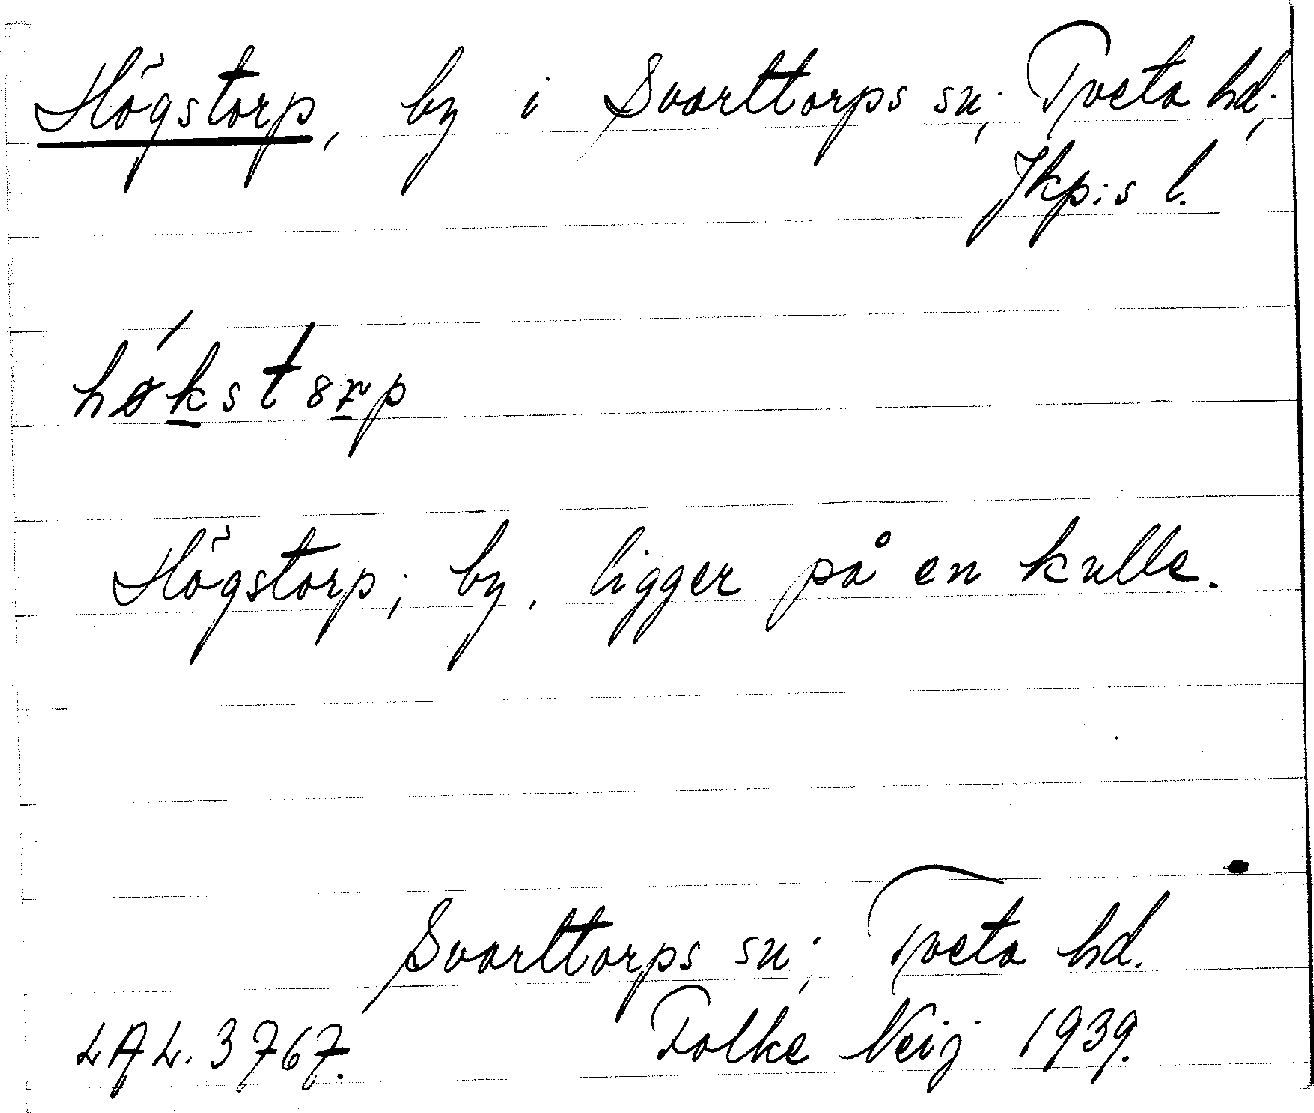 Högstorp, by i Svarttorps sn; Tveta hd;
Jkp:s l.
hǿkstȣrp
Högstorp; by, ligger på en kulle.
Svarttorps sn; Tveta hd.
LAL. 3767. Folke Neij 1939.